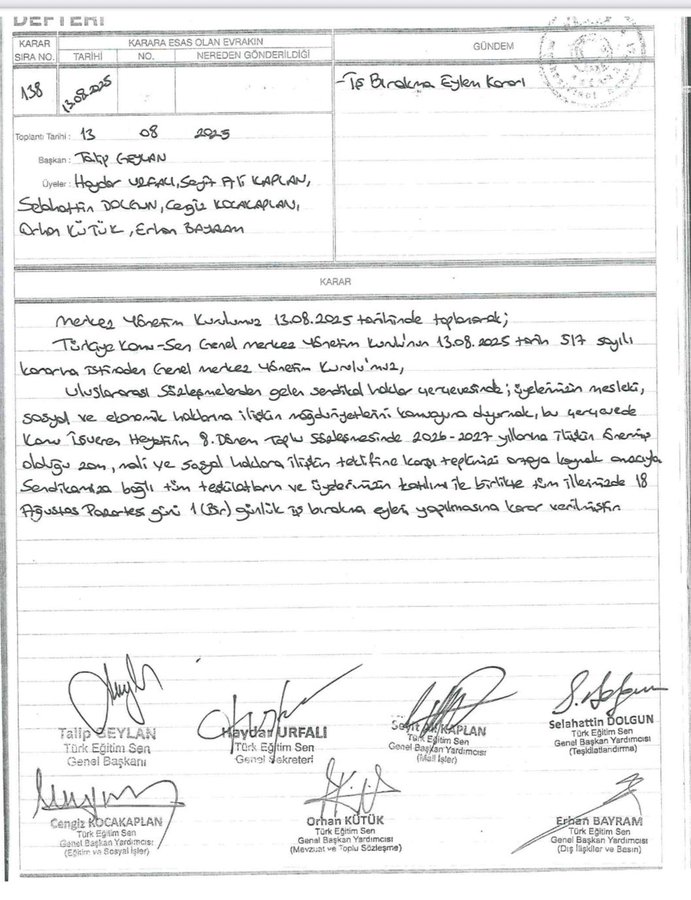 DEFTERİ
KARAR SIRA NO.
KARARA ESAS OLAN EVRAKIN
TARİHİ NO. NEREDEN GÖNDERİLDİĞİ
GÜNDEM
138 13.08.2025
-İş Bırakma Eylem Kararı
Toplantı Tarihi : 13 08 2025
Başkan : Talip GEYLAN
Üyeler : Haydar URFALI, Seyit Ali KAPLAN,
Selahattin DOLGUN, Cengiz KOCAKAPLAN,
Orhan KÜTÜK, Erhan BAYRAM
KARAR
Merkez Yönetim Kurulumuz 13.08.2025 tarihinde toplanarak;
Türkiye Kamu-Sen Genel Merkez Yönetim Kurulu'nun 13.08.2025 tarih 517 sayılı
kararına istinaden Genel Merkez Yönetim Kurulu'muz,
Uluslararası Sözleşmelerden gelen sendikal haklar çerçevesinde; üyelerimizin mesleki,
sosyal ve ekonomik haklarına ilişkin mağduriyetlerini kamuoyuna duyurmak, bu çerçevede
Kamu İşveren Heyetinin 8. Dönem Toplu Sözleşmesinde 2026-2027 yıllarına ilişkin önermiş
olduğu zam, mali ve sosyal haklara ilişkin teklifine karşı tepkimizi ortaya koymak amacıyla
Sendikamıza bağlı tüm teşkilatların ve üyelerimizin katılımı ile birlikte tüm illerimizde 18
Ağustos Pazartesi günü 1 (Bir) günlük iş bırakma eylemi yapılmasına karar verilmiştir
Talip GEYLAN
Türk Eğitim Sen
Genel Başkanı
Haydar URFALI
Türk Eğitim Sen
Genel Sekreteri
Seyit Ali KAPLAN
Türk Eğitim Sen
Genel Başkan Yardımcısı
(Mali İşler)
Selahattin DOLGUN
Türk Eğitim Sen
Genel Başkan Yardımcısı
(Teşkilatlandırma)
Cengiz KOCAKAPLAN
Türk Eğitim Sen
Genel Başkan Yardımcısı
(Eğitim ve Sosyal İşler)
Orhan KÜTÜK
Türk Eğitim Sen
Genel Başkan Yardımcısı
(Mevzuat ve Toplu Sözleşme)
Erhan BAYRAM
Türk Eğitim Sen
Genel Başkan Yardımcısı
(Dış İlişkiler ve Basın)